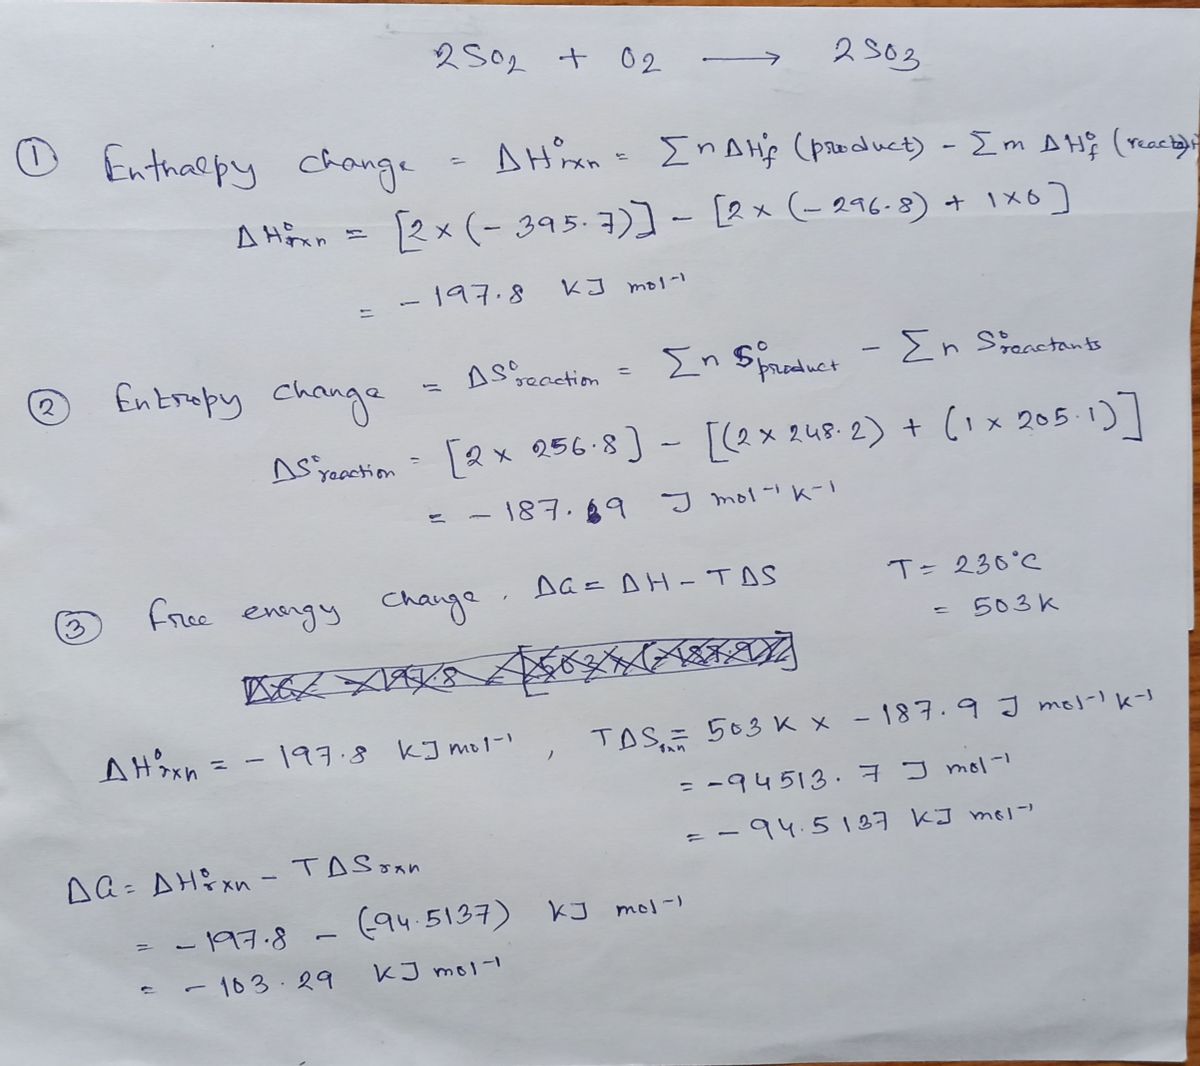 2SO2 + O2 ⟶ 2SO3
① Enthalpy change = ΔH°rxn = Σn ΔH°f (product) - Σm ΔH°f (reactant)
ΔH°rxn = [2 × (- 395.7)] - [2 × (- 296.8) + 1×0]
= - 197.8 KJ mol⁻¹
② Entropy change = ΔS°reaction = Σn S°product - Σn S°reactants
ΔS°reaction = [2 × 256.8] - [(2 × 248.2) + (1 × 205.1)]
= - 187.9 J mol⁻¹ K⁻¹
③ free energy change, ΔG = ΔH - TΔS T = 230°C
= 503K
ΔH°rxn = - 197.8 KJ mol⁻¹, TΔSrxn = 503 K × - 187.9 J mol⁻¹ K⁻¹
= -94513.7 J mol⁻¹
= - 94.5137 KJ mol⁻¹
ΔG = ΔH°rxn - TΔSrxn
= - 197.8 - (-94.5137) KJ mol⁻¹
= - 103.29 KJ mol⁻¹